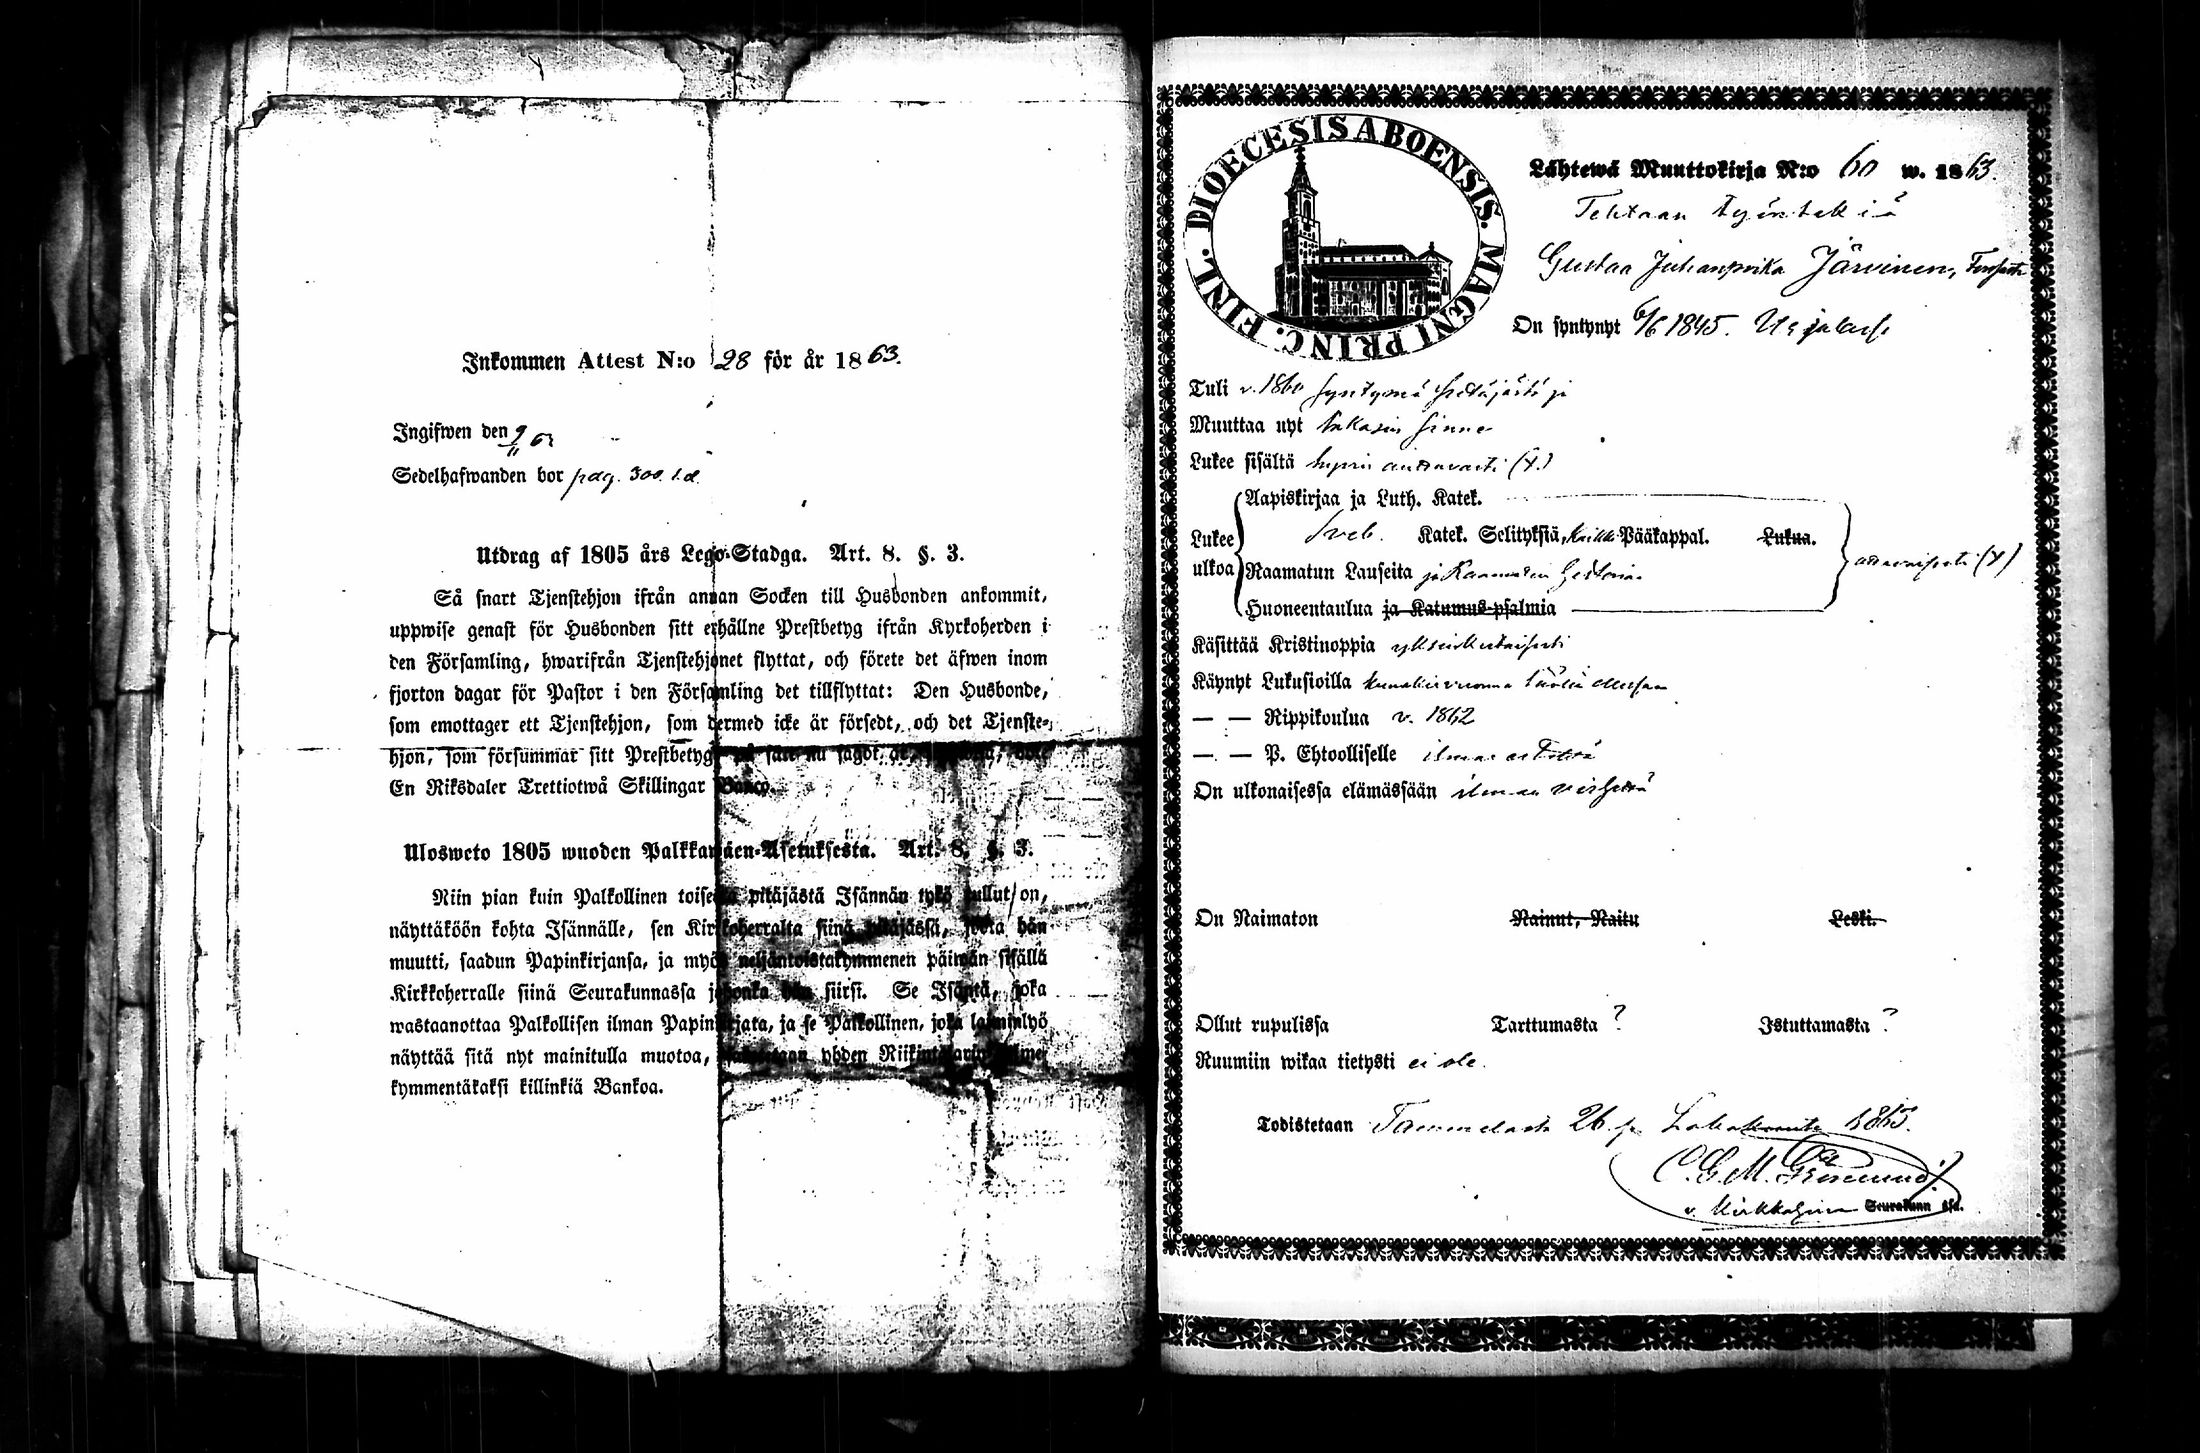 Inkommen Attest N:o 28 för år 1863.
Ingifwen den 9
Sedelhafwanden bor pag. 300.
Utdrag af 1805 års Lego-Stadga. Art. 8. §. 3.
Så snart Tjenstehjon ifrån annan Socken till Husbonden ankommit,
uppwise genast för Husbonden sitt erhållne Prestbetyg ifrån Kyrkoherden i
den Församling, hwarifrån Tjenstehjonet flyttat, och förete det äfwen inom
fjorton dagar för Pastor i den Församling det tillflyttat: Den Husbonde,
som emottager ett Tjenstehjon, som dermed icke är försedt, och det Tjenste-
hjon, som försummar sitt Prestbetyg på sätt nu sagdt är,
En Riksdaler Trettiotwå Skillingar Banco.
Ulosweto 1805 wuoden Palkkawäen-Asetuksesta. Art. 8. §. 3.
Niin pian kuin Palkollinen toisesta pitäjästä Isännän tykö tullut on,
näyttäköön kohta Isännälle, sen Kirkkoherralta siinä pitäjässä, josta hän
muutti, saadun Papinkirjansa, ja myös neljäntoistakymmenen päiwän sisällä
Kirkkoherralle siinä Seurakunnassa johonka hän siirsi. Se Isäntä, joka
wastaanottaa Palkollisen ilman Papinkirjata, ja se Palkollinen, joka laiminlyö
näyttää sitä nyt mainitulla muotoa, yhden Riikintalarin
kymmentäkaksi killinkiä Bankoa.
DIOECESIS ABOENSIS. MAGNI PRINC. FINL.
Lähtewä Muuttokirja N:o 60 w. 1863.
Tehtaan työntekiä
Gustaa Juhanpoika Järvinen,
On syntynyt 6/6 1845. Urjalass
Tuli v. 1860 syntymä
Muuttaa nyt takasin sinne
Lukee sisältä (X.)
Aapiskirjaa ja Luth. Katek.
Lukee ulkoa
Sveb. Katek. Selityksiä, kaikki Pääkappal. Lukua.
Raamatun Lauseita ja Raamatun
Huoneentaulua ja Katumus-psalmia
(X)
Käsittää Kristinoppia yksinkertaisesti
Käynyt Lukusioilla
— — Rippikoulua v. 1862
— — P. Ehtoolliselle ilman estettä
On ulkonaisessa elämässään ilman
On Naimaton Nainut, Naitu Leski.
Ollut rupulissa Tarttumasta ? Istuttamasta ?
Ruumiin wikaa tietysti ei ole.
Todistetaan Tammelasta 26 p. Lokakuuta
C. G. M.
v. Kirkkoherra Seurakunn